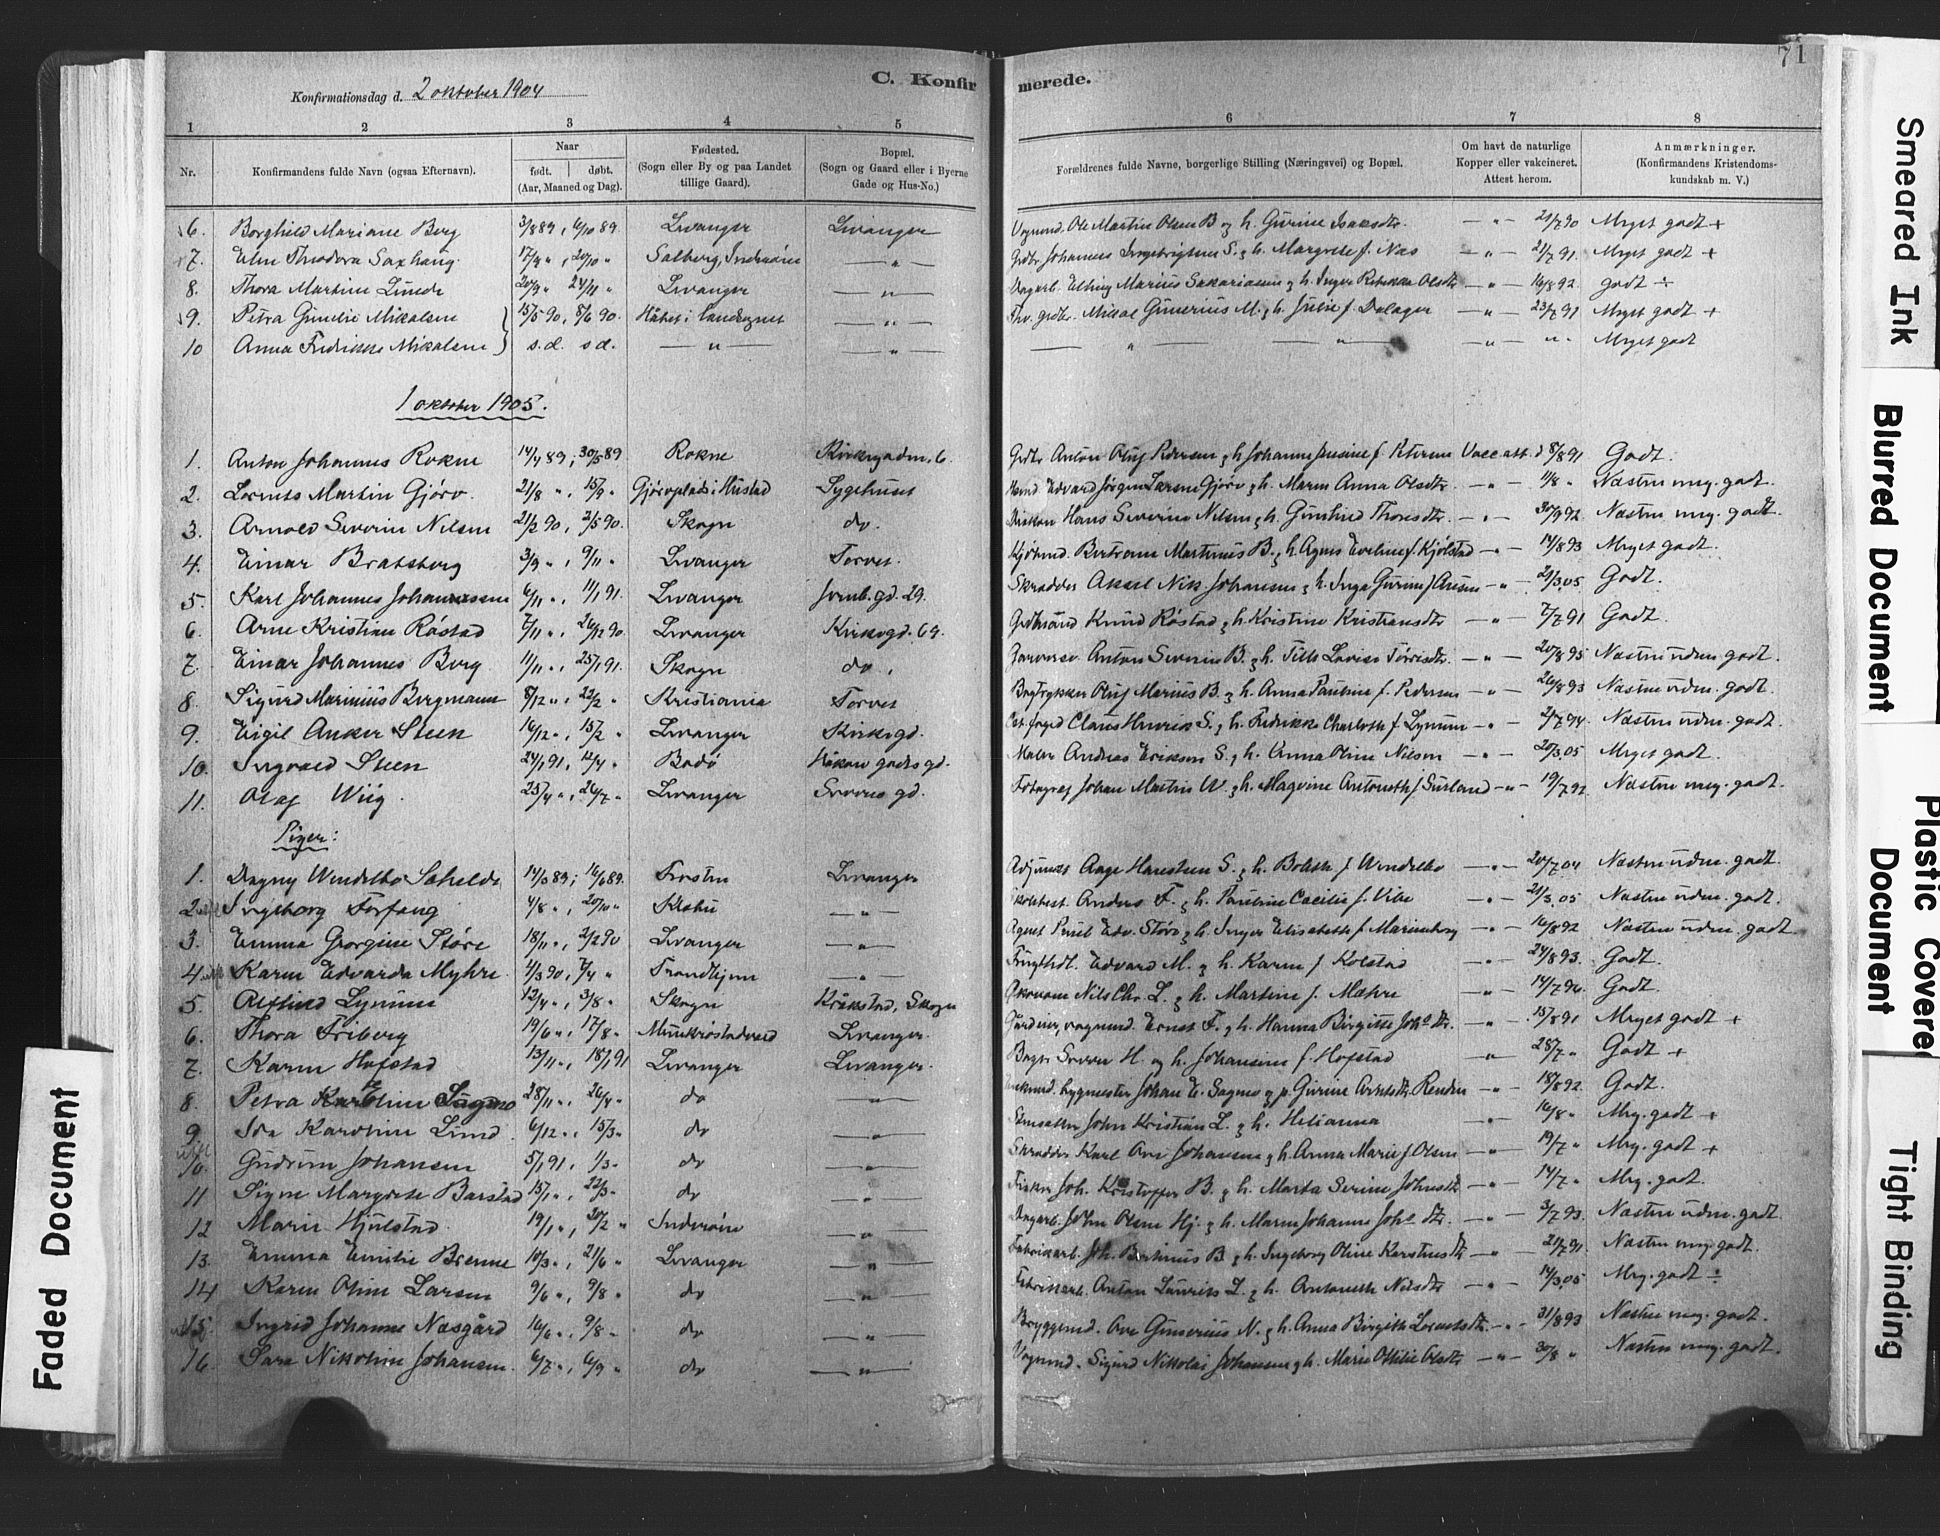 71
C. Konfirmerede.
Konfirmationsdag d. 2 oktober 1904
1 2 3 4 5 6 7 8
Nr. Konfirmandens fulde Navn (ogsaa Efternavn). Naar født. døbt. (Aar, Maaned og Dag). Fødested. (Sogn eller By og paa Landet tillige Gaard). Bopæl. (Sogn og Gaard eller i Byerne Gade og Hus-No.) Forældrenes fulde Navne, borgerlige Stilling (Næringsvei) og Bopæl. Om havt de naturlige Kopper eller vakcineret. Attest herom. Anmærkninger. (Konfirmandens Kristendomskundskab m. V.)
6. Borghild Mariane Berg 3/8 89, 6/10 89. Levanger Levanger Vognmd. Ole Martin Olsen B og h. Gurine Isaksdtr. — " — 21/7 90 Meget godt +
7. Elen Theodora Saxhaug 17/9 ", 20/10 " Salberg, Inderøen — " — Johannes Ingebrigtsen S. & h. Margrete f. Næs — " — 21/7 91. Meget godt +
8. Thora Martine Lunde 20/9 " 24/11 " Levanger — " — Dagarb. Elling Marius Sakariasen & h. Inger Rebekka Olsdtr — " — 16/8 92. godt ÷
9. Petra Gunelie Mikalsen 15/5 90, 8/6 90. i landsognet — " — Mikal Gunerius M. & h. Julie f. Dalager — " — 23/7 91 Meget godt +
10 Anna Fredrikke Mikalsen s.d. s.d. — " — — " — — " — " — — " — " Meget godt
1 oktober 1905.
1. Anton Johannes Rokne 14/4 89, 30/5 89 Rokne Kirkegaden. 6. Anton Oluf Pedersen & h Johanna f. Petersen Vacc. att. d 8/8 91 Godt.
2. Lornts Martin Gjørv. 21/8 ", 15/9 " Gjørvplads i Hustad Sygehuset Edvard Jørgen Larsen Gjørv & h. Maren Anna Olsdtr. — " — 11/8 " Næsten meg. godt.
3. Arnold Severin Nilsen 21/2 90, 2/5 90. Skogn do. Hans Severin Nilsen & h. Gunhild Thoresdtr. — " — 30/9 92. Næsten meg. godt.
4. Einar Bratsberg 3/9 ", 9/11 " Levanger Torvet. Kjøbmd. Bertram Martinus B. & h. Agnes Eveline f. Kjølstad — " — 14/8 93 Meget godt.
5. Karl Johannes Johannessen 6/11 ", 11/1 91. Levanger Jernb. gd. 29. Skrædder Aksel Nik. Johansen & h. Inga Gurine f. — " — 21/3 05 Godt.
6. Arne Kristian Røstad 7/11 ", 26/12 90. Levanger Kirkegd. 69. Knud Røstad & h. Kristine Kristiansdtr — " — 7/7 91 Godt.
7. Einar Johannes Berg 11/11 ", 25/1 91. Skogn do. Anton Severin B. & h. Lovise — " — 20/8 95 Næsten uden. godt.
8. Sigurd Marinius Bergmann 8/12 ", 22/2 " Kristiania Torvet Bogtrykker Oluf Marius B. & h. Anna Pauline f. Pedersen — " — 26/8 93 Næsten uden. godt.
9. Eigil Anker Steen 16/12 ", 15/2 " Levanger Kirkegd. Claus Henrik S. & h. Fredrikke Charlotte f. Lynum — " — 2/7 94. Næsten uden. godt.
10. Ingvald Steen 24/1 91, 12/4 " Bodø Håkon jarls gd. Maler Andreas Eriksen S. & h. Anna Oline Nilsen — " — 20/3 05 Meget godt.
11. Olaf Wiig 25/4 ", 26/7 " Levanger Sverres gd. Fotograf Johan Martin W. & h. Magrine Antonette f. Surland — " — 19/7 92. Næsten meg. godt.
Piger:
1. Dagny Wendelbo Schelde 14/3 89, 16/6 89. Frosten Levanger Adjunkt Aage Harestein S. & h. Bolette f Wendelbo — " — 20/7 04 Næsten uden. godt.
2. Ingeborg Forfang 4/8 ", 20/10 " Klæbu — " — Anders F. & h. Pauline Cecilie f. Vibe — " — 21/3 05 Næsten uden. godt.
3. Emma Georgine Støre 18/11 ", 2/2 90 Levanger — " — Agent Peter Edv. Støre & h. Inger Elisabeth f Marienborg — " — 16/8 92 Næsten uden. godt.
4. Karen Edvarda Myhre 11/3 90, 7/4 " Trondhjem — " — Edvard M. & h. Karen f Kolstad — " — 24/8 93. Godt.
5. Lynum 12/4 ", 3/8 " Skogn Kråkstad, Skogn Nils Chr. L. & h. Martine f. Mæhre — " — 14/7 96. Godt.
6. Thora Friberg 19/6 ", 17/8 " Munkrøstadvald Levanger. Gardein, vognmd. Ernst F. & h. Hanna Birgitte Johs dtr. — " — 15/8 91 Meget godt +
7. Karen Hofstad 13/11 ", 18/1 91 Levanger Levanger. Bager Sverre H. og h. Johansine f. Hofstad " 28/7 " Godt +
8. Petra Karoline Sagmo 28/11 ", 26/4 " do — " — bygmester Johan E. Sagmo & p. Gurine Arntsdtr. Renden — " — 18/8 92. Godt.
9. Ida Karoline Lund 6/12 ", 15/3 " do — " — John Kristian L. & h. Helianna " 16/8 " Meg. godt +
10. Gudrun Johansen 5/1 91, 1/3 " do — " — Skrædder Karl Ove Johansen & h. Anna Marie f. Olsen — " — 19/7 " Meg. godt +
11 Signe Margrete Barstad 15/1 ", 22/3 " do — " — Fisker Joh. Kristoffer B. & h. Marta Serine Johnsdtr — " — 14/7 " Meg. godt.
12 Marie Hjulstad 19/1 ", 20/2 " Inderøen — " — Dagarb. John Olsen Hj. & h. Maren Johanna Johs dtr. — " — 3/7 93. Næsten uden. godt
13. Emma Emilie Brenne 10/3 ", 21/6 " Levanger — " — Fabrikarb. Joh. Bertinius B & h. Ingeborg Oline Karstensdtr — " — 21/7 91. Næsten meg. godt.
14 Karen Oline Larsen 9/6 ", 9/8 " do — " — Fabrikarb. Anton Laurits L. & h. Antonette Nilsdtr — " — 14/3 05 Meg. godt ÷
15. Ingrid Johanne Næsgård 16/6 ", 9/8 " do — " — Bryggemd. Ove Gunerius N. & h. Anna Birgitte Lorntsdtr. — " — 31/8 93 Næsten meg. godt.
16 Sara Nikoline Johansen. 6/7 ", 6/9 " do — " — Vognmd. Sigurd Nikolai Johansen & h. Marie Ottilie Olsdtr — " — 30/8 " Næsten meg. godt.
Faded Document
Smeared Ink
Blurred Document
Plastic Covered Document
Tight Binding